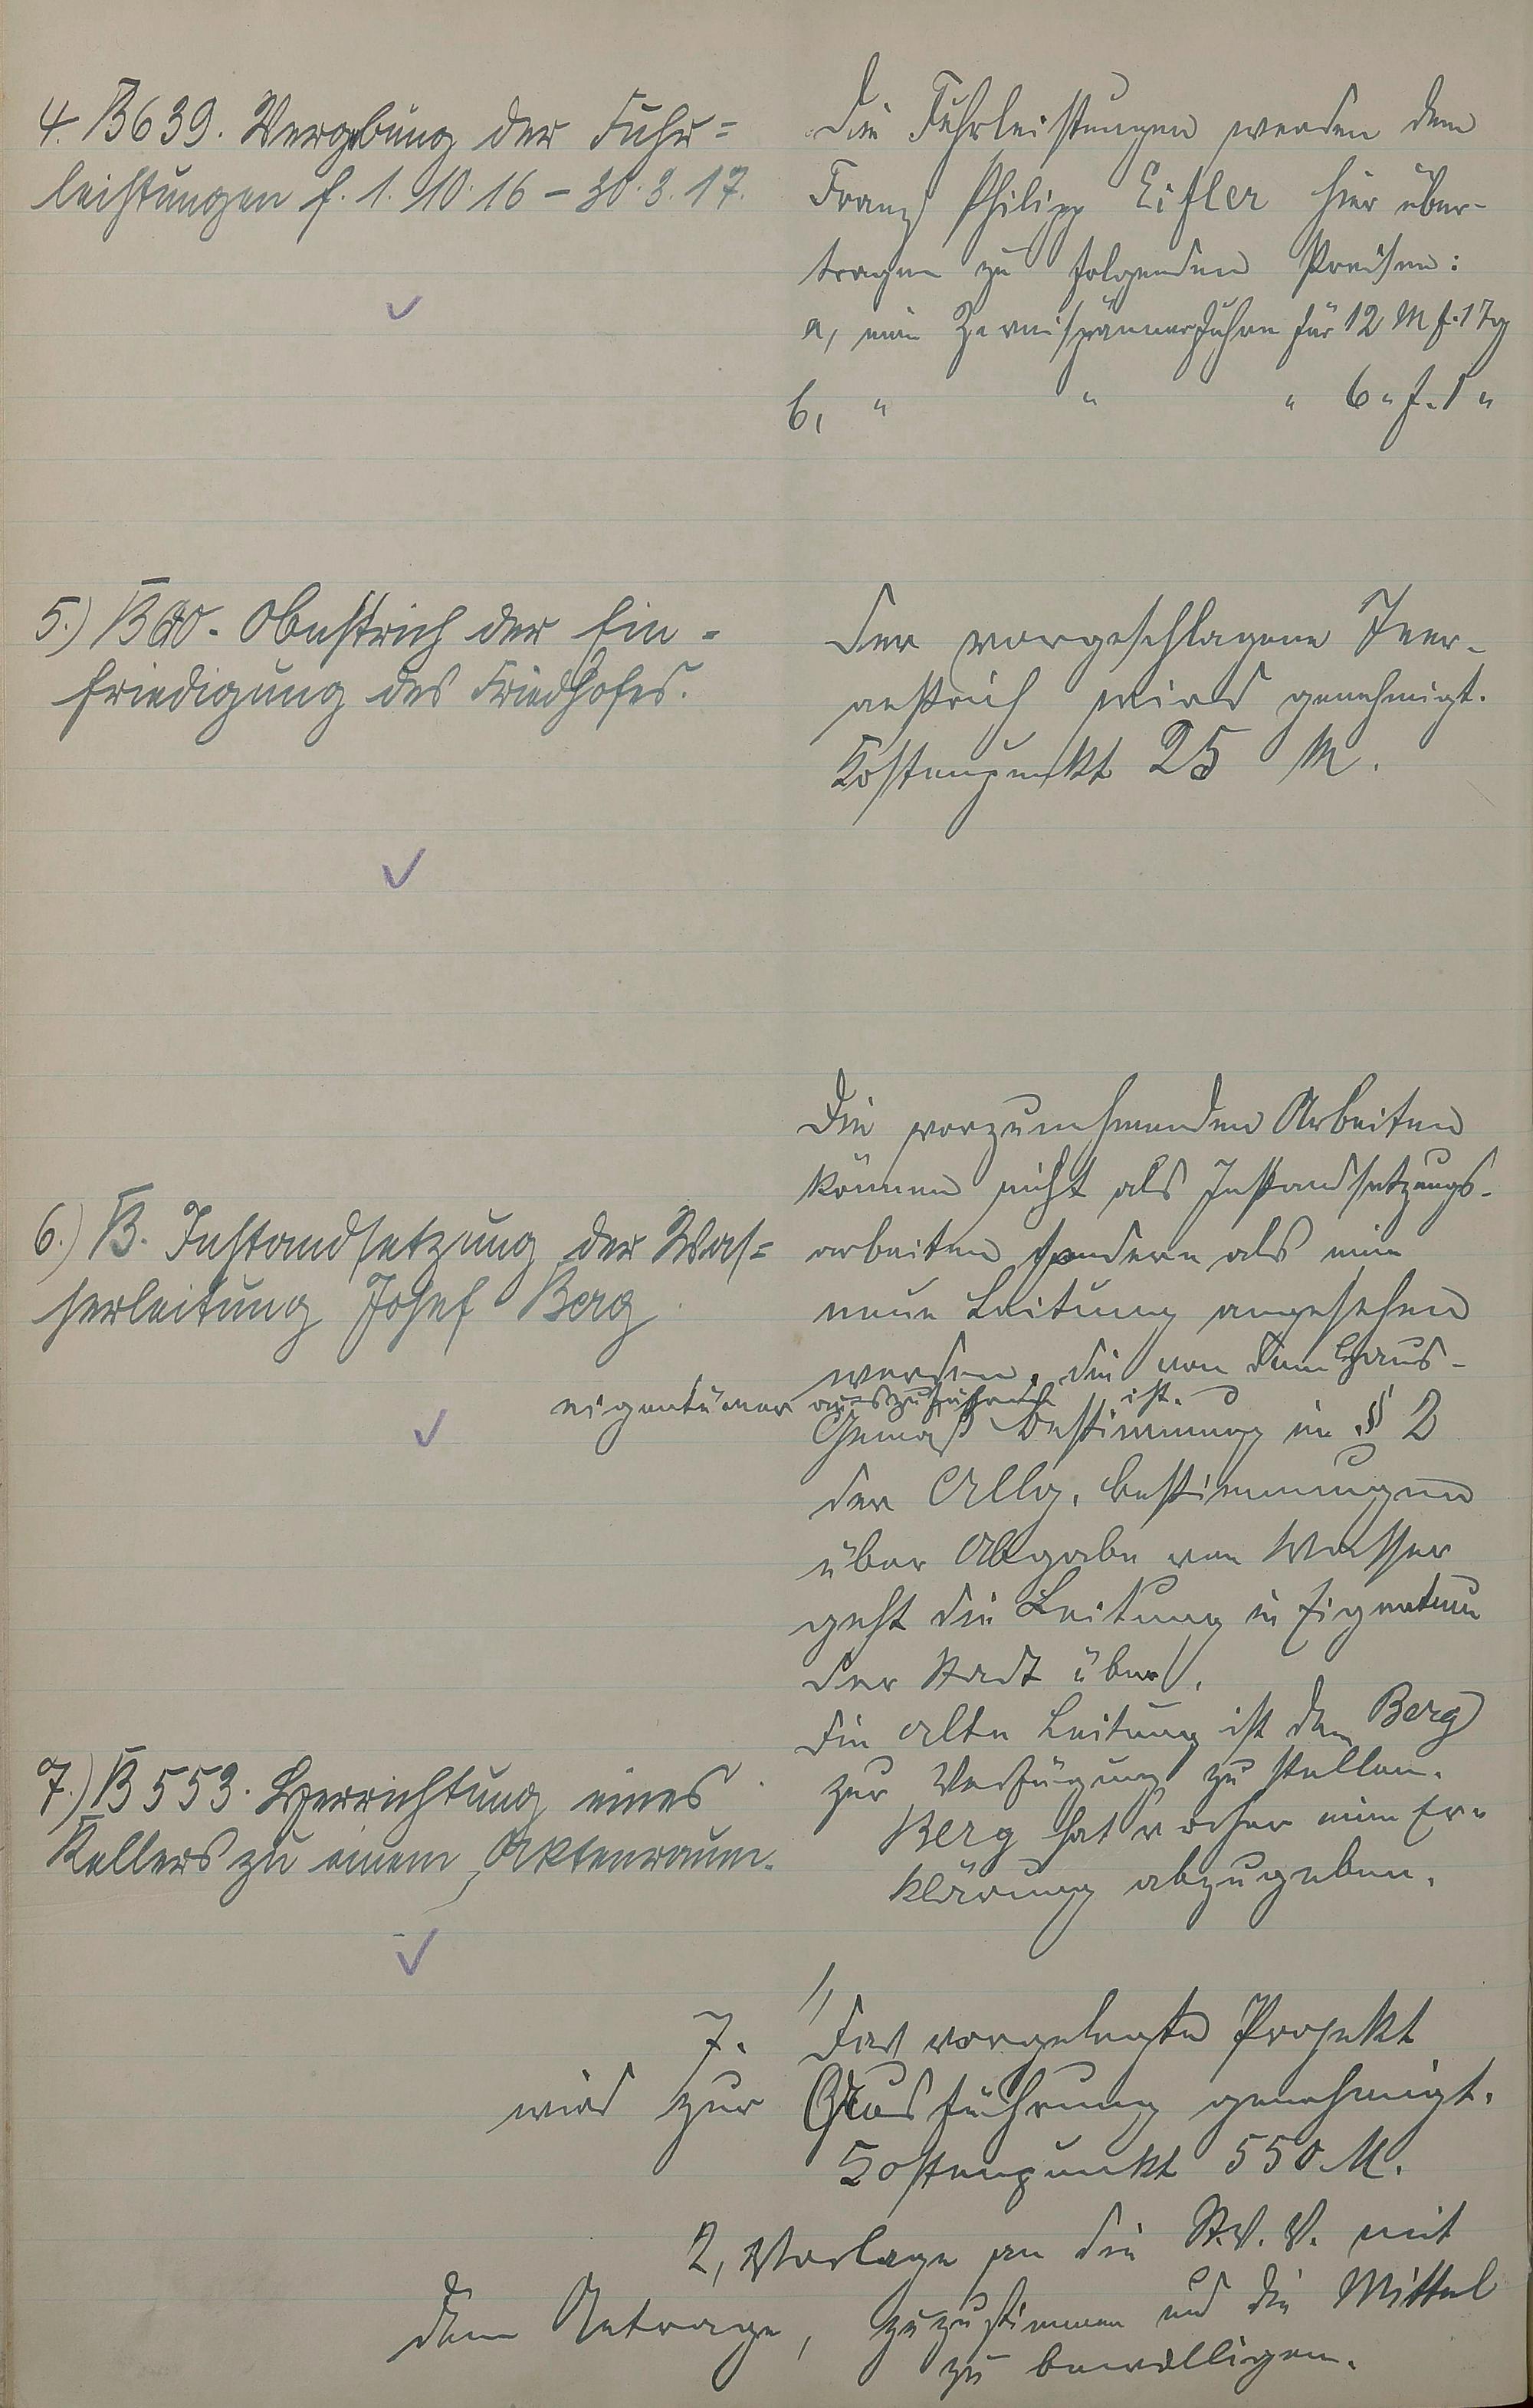 4. B 639. Vergebung der Fuhr=
leistungen f. 1. 10. 16 – 30. 3. 17.
Die Fuhrleistungen werden dem
Franz Philipp Eifler hier über-
tragen zu folgenden Preisen:
a, eine Zweispännerfuhre für 12 M f. 1 Tg
b, " " " 6 " f. "
5.) B. Anstrich der Ein=
friedigung des Friedhofes.
Der vorgeschlagene Teer-
anstrich wird genehmigt.
Kostenpunkt 25 M.
6.) B. Instandsetzung der Was=
serleitung Josef Berg
Die vorzunehmenden Arbeiten
können nicht als Instandsetzungs-
arbeiten sondern als eine
neue Leitung angesehen
werden, die von dem Haus-
eigentümer auszuführen ist.
Gemäß Bestimmung in § 2
der Allg. Bestimmungen
über Abgabe von Wasser
geht die Leitung in Eigentum
der Stadt über.
Die alte Leitung ist dem Berg
zur Verfügung zu stellen.
Berg hat vorher eine Er=
klärung abzugeben.
7.) B 553. Herrichtung eines
Kellers zu einem Aktenraum.
7. 1, Das vorgelegte Projekt
wird zur Ausführung genehmigt.
Kostenpunkt 550 M.
2, Vorlage an die St. V. V. mit
dem Antrage, zuzustimmen und die Mittel
zu bewilligen.